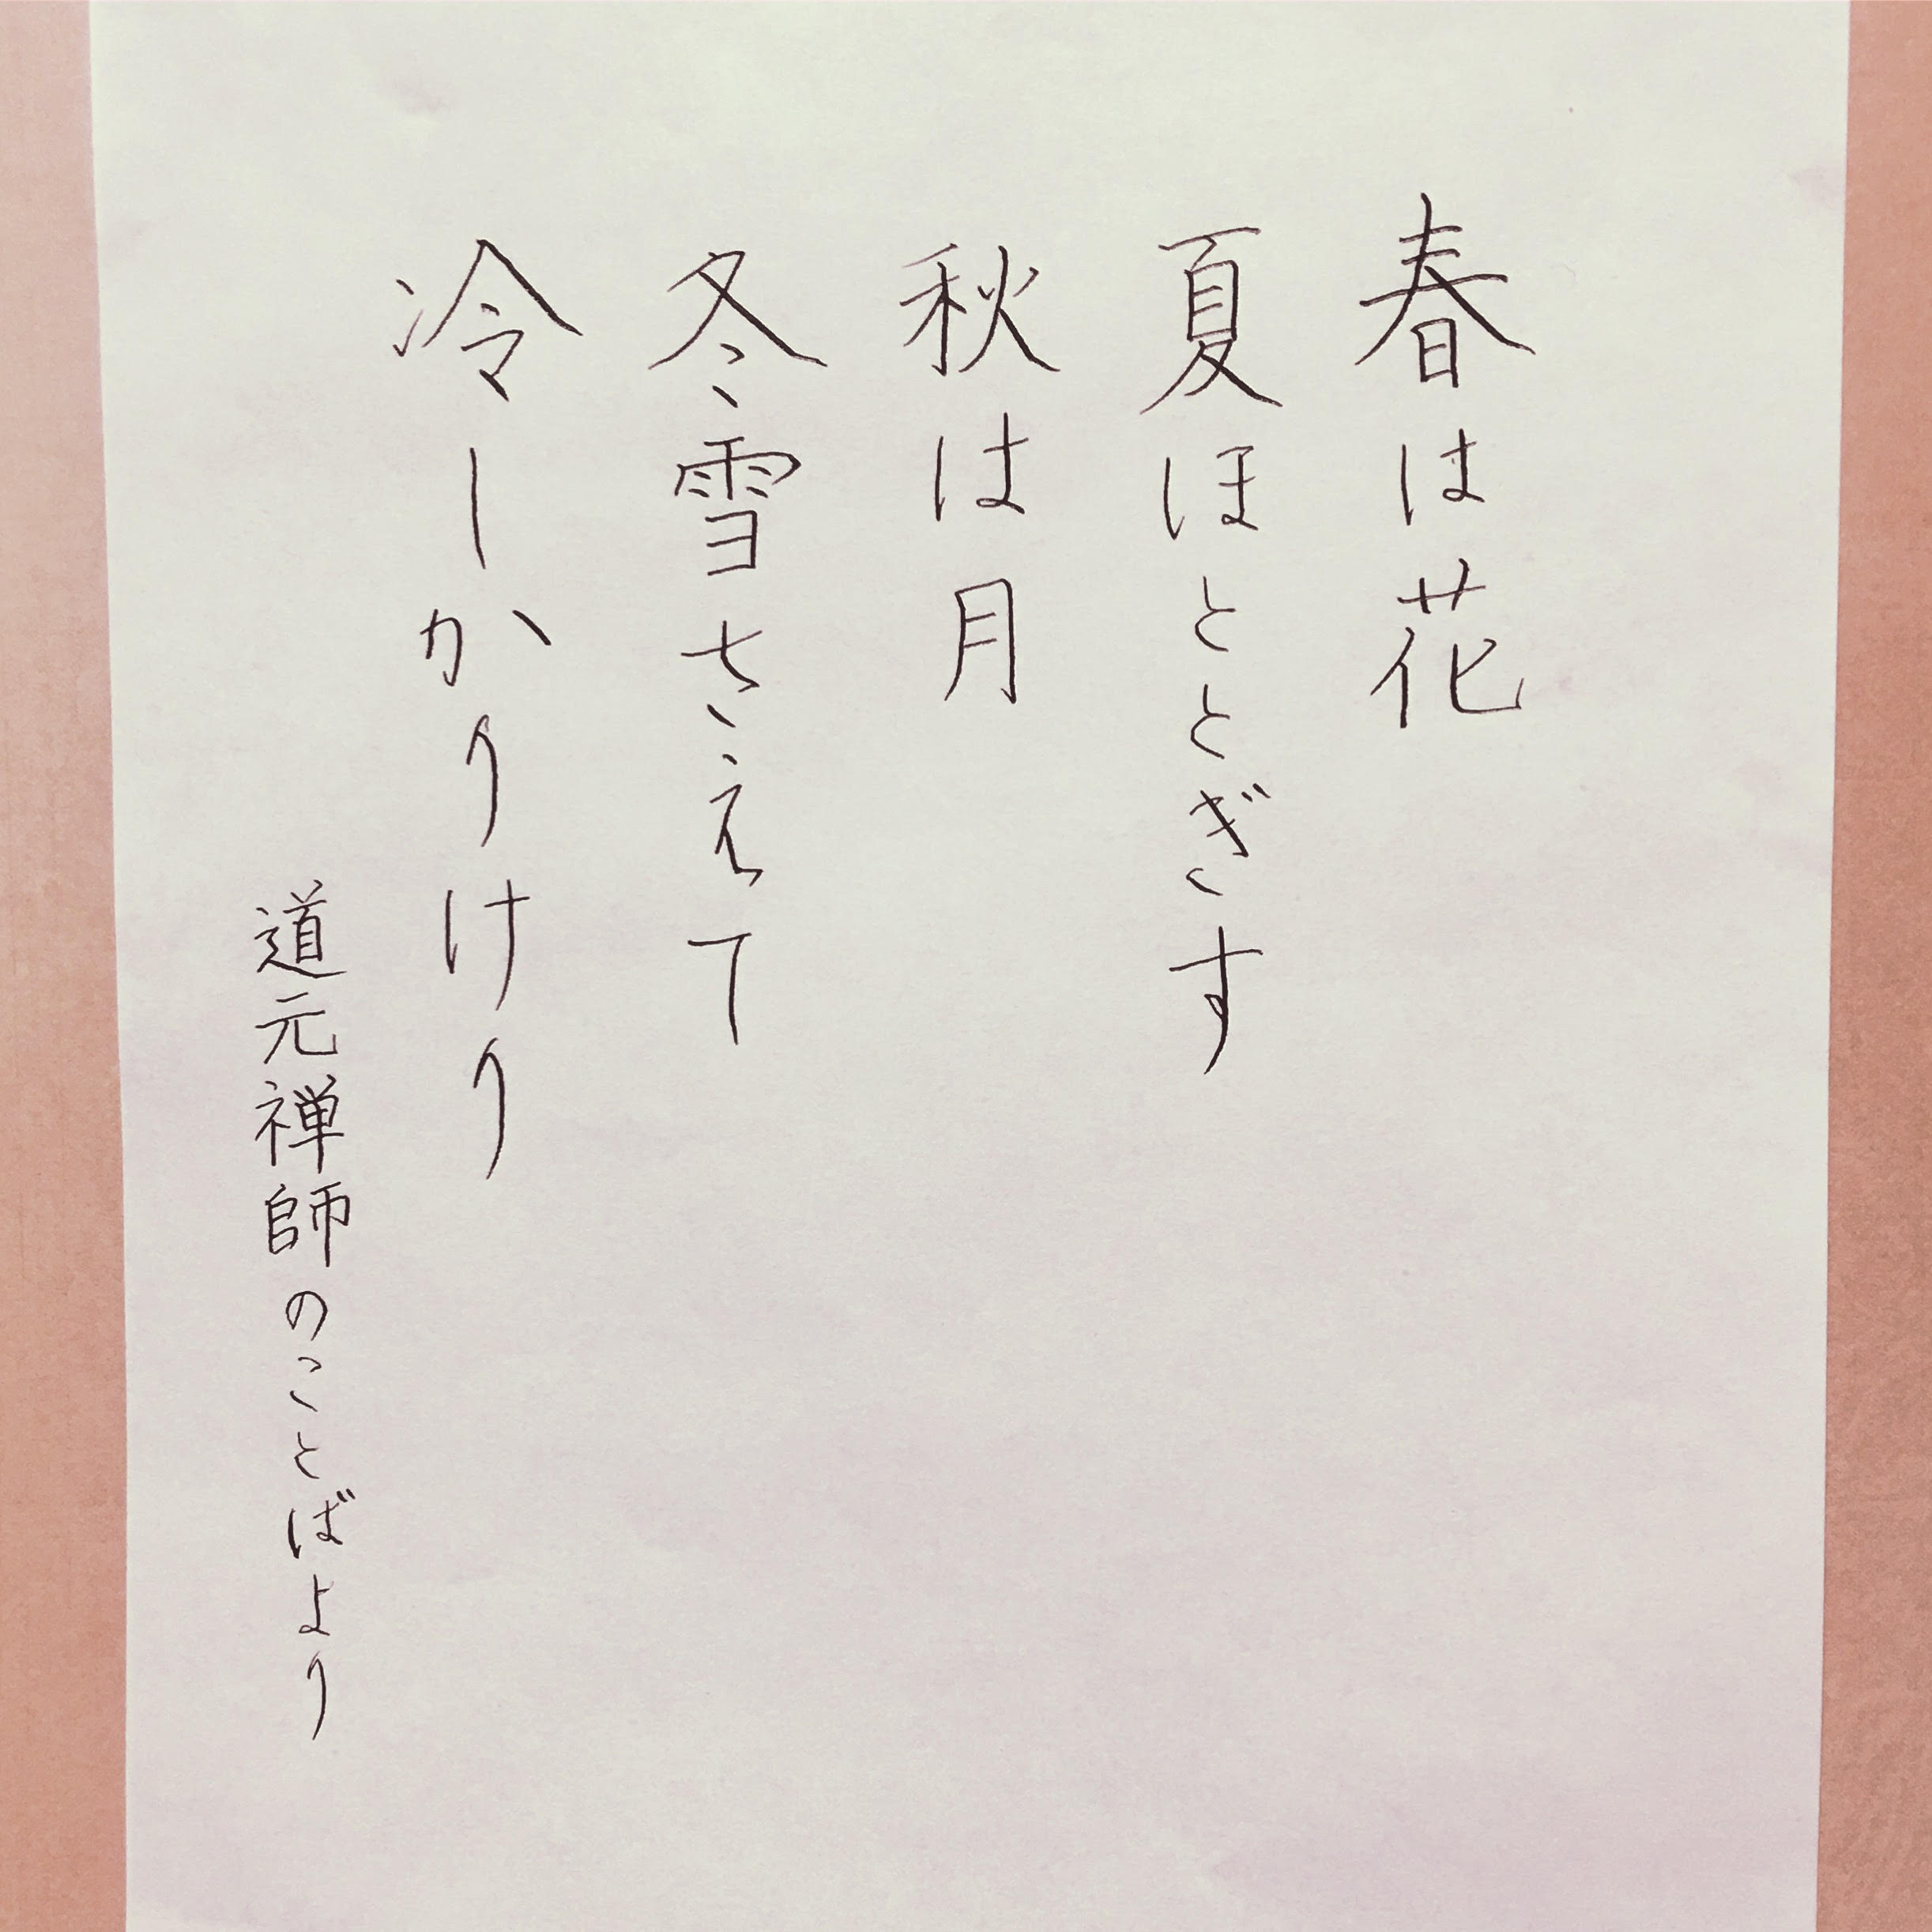 春は花
夏ほととぎす
秋は月
冬雪さえて
冷しかりけり
道元禅師のことばより